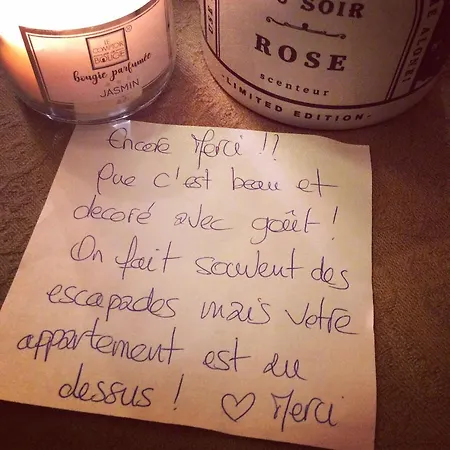 LE COMPTOIR
DE LA
BOUGIE
bougie parfumée
JASMIN
DU SOIR
ROSE
scenteur
LIMITED EDITION
Encore Merci !!
Que c'est beau et
decoré avec goût !
On fait souvent des
escapades mais votre
appartement est au
dessus ! ♡ Merci